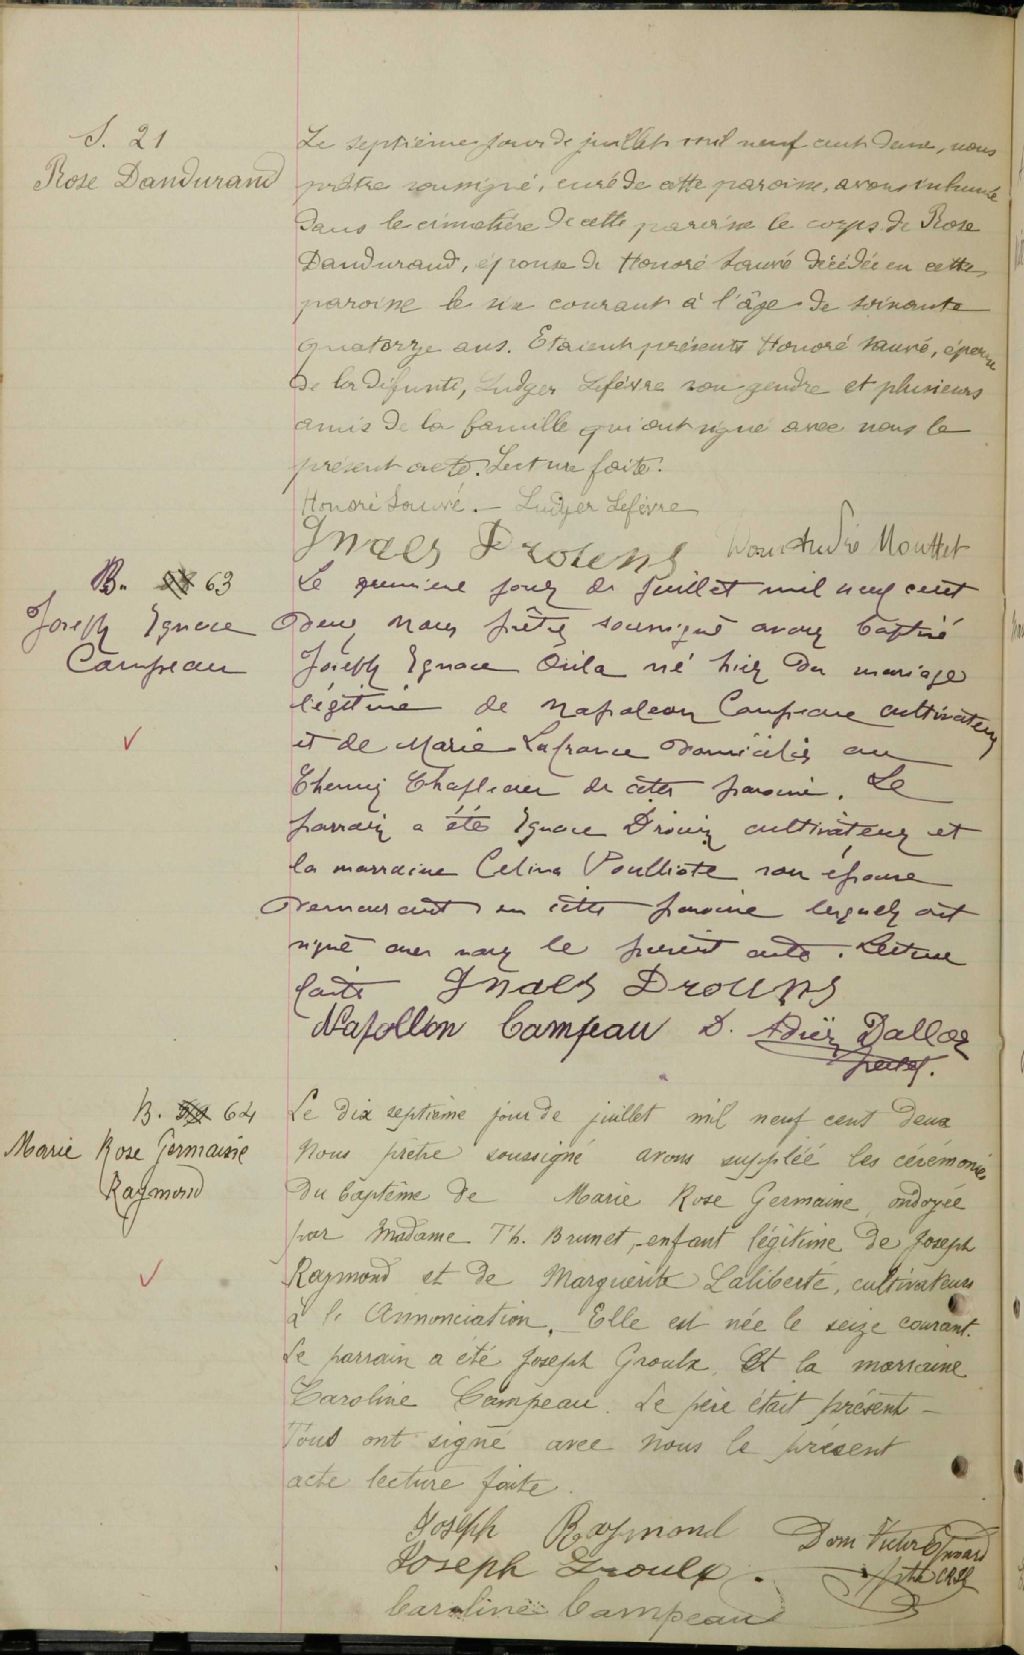 S. 21
Rose Dandurand
Le septième jour de juillet mil neuf cent deux, nous
prêtre soussigné, curé de cette paroisse, avons inhumé
dans le cimetière de cette paroisse le corps de Rose
Dandurand, épouse de Honoré Sauvé décédée en cette
paroisse le six courant à l'âge de soixante
quatorze ans. Etaient présents Honoré Sauvé, époux
de la défunte, Ludger Lefèvre son gendre et plusieurs
amis de la famille qui ont signé avec nous le
présent acte. Lecture faite.
Honoré Sauvé. — Ludger Lefèvre
Mouttet
B. 63
Joseph Ignace
Campeau
Le jour de Juillet mil neuf cent
deux, nous prêtre soussigné avons baptisé
Joseph Ignace né hier du mariage
légitime de Napoleon Campeau cultivateur
et de Marie Lafrance domiciliés au
Chemin Chapleau de cette paroisse. Le
parrain a été Ignace Drouin cultivateur et
la marraine Celina Poulliote son épouse
demeurant en cette paroisse lesquels ont
signé avec nous le présent acte. Lecture
faite
Napollion Campeau D. Dalloz
B. 64
Marie Rose Germaine
Raymond
Le dix septième jour de juillet mil neuf cent deux
Nous prêtre soussigné avons suppléé les cérémonies
du baptême de Marie Rose Germaine, ondoyée
par Madame Th. Brunet, enfant légitime de Joseph
Raymond et de Marguerite Laliberté, cultivateurs
à l'Annonciation. — Elle est née le seize courant.
Le parrain a été Joseph Groulx. Et la marraine
Caroline Campeau. Le père était présent —
Tous ont signé avec nous le présent
acte lecture faite.
Joseph Raymond Dom Victor
Joseph Groulx.
Caroline Campeau